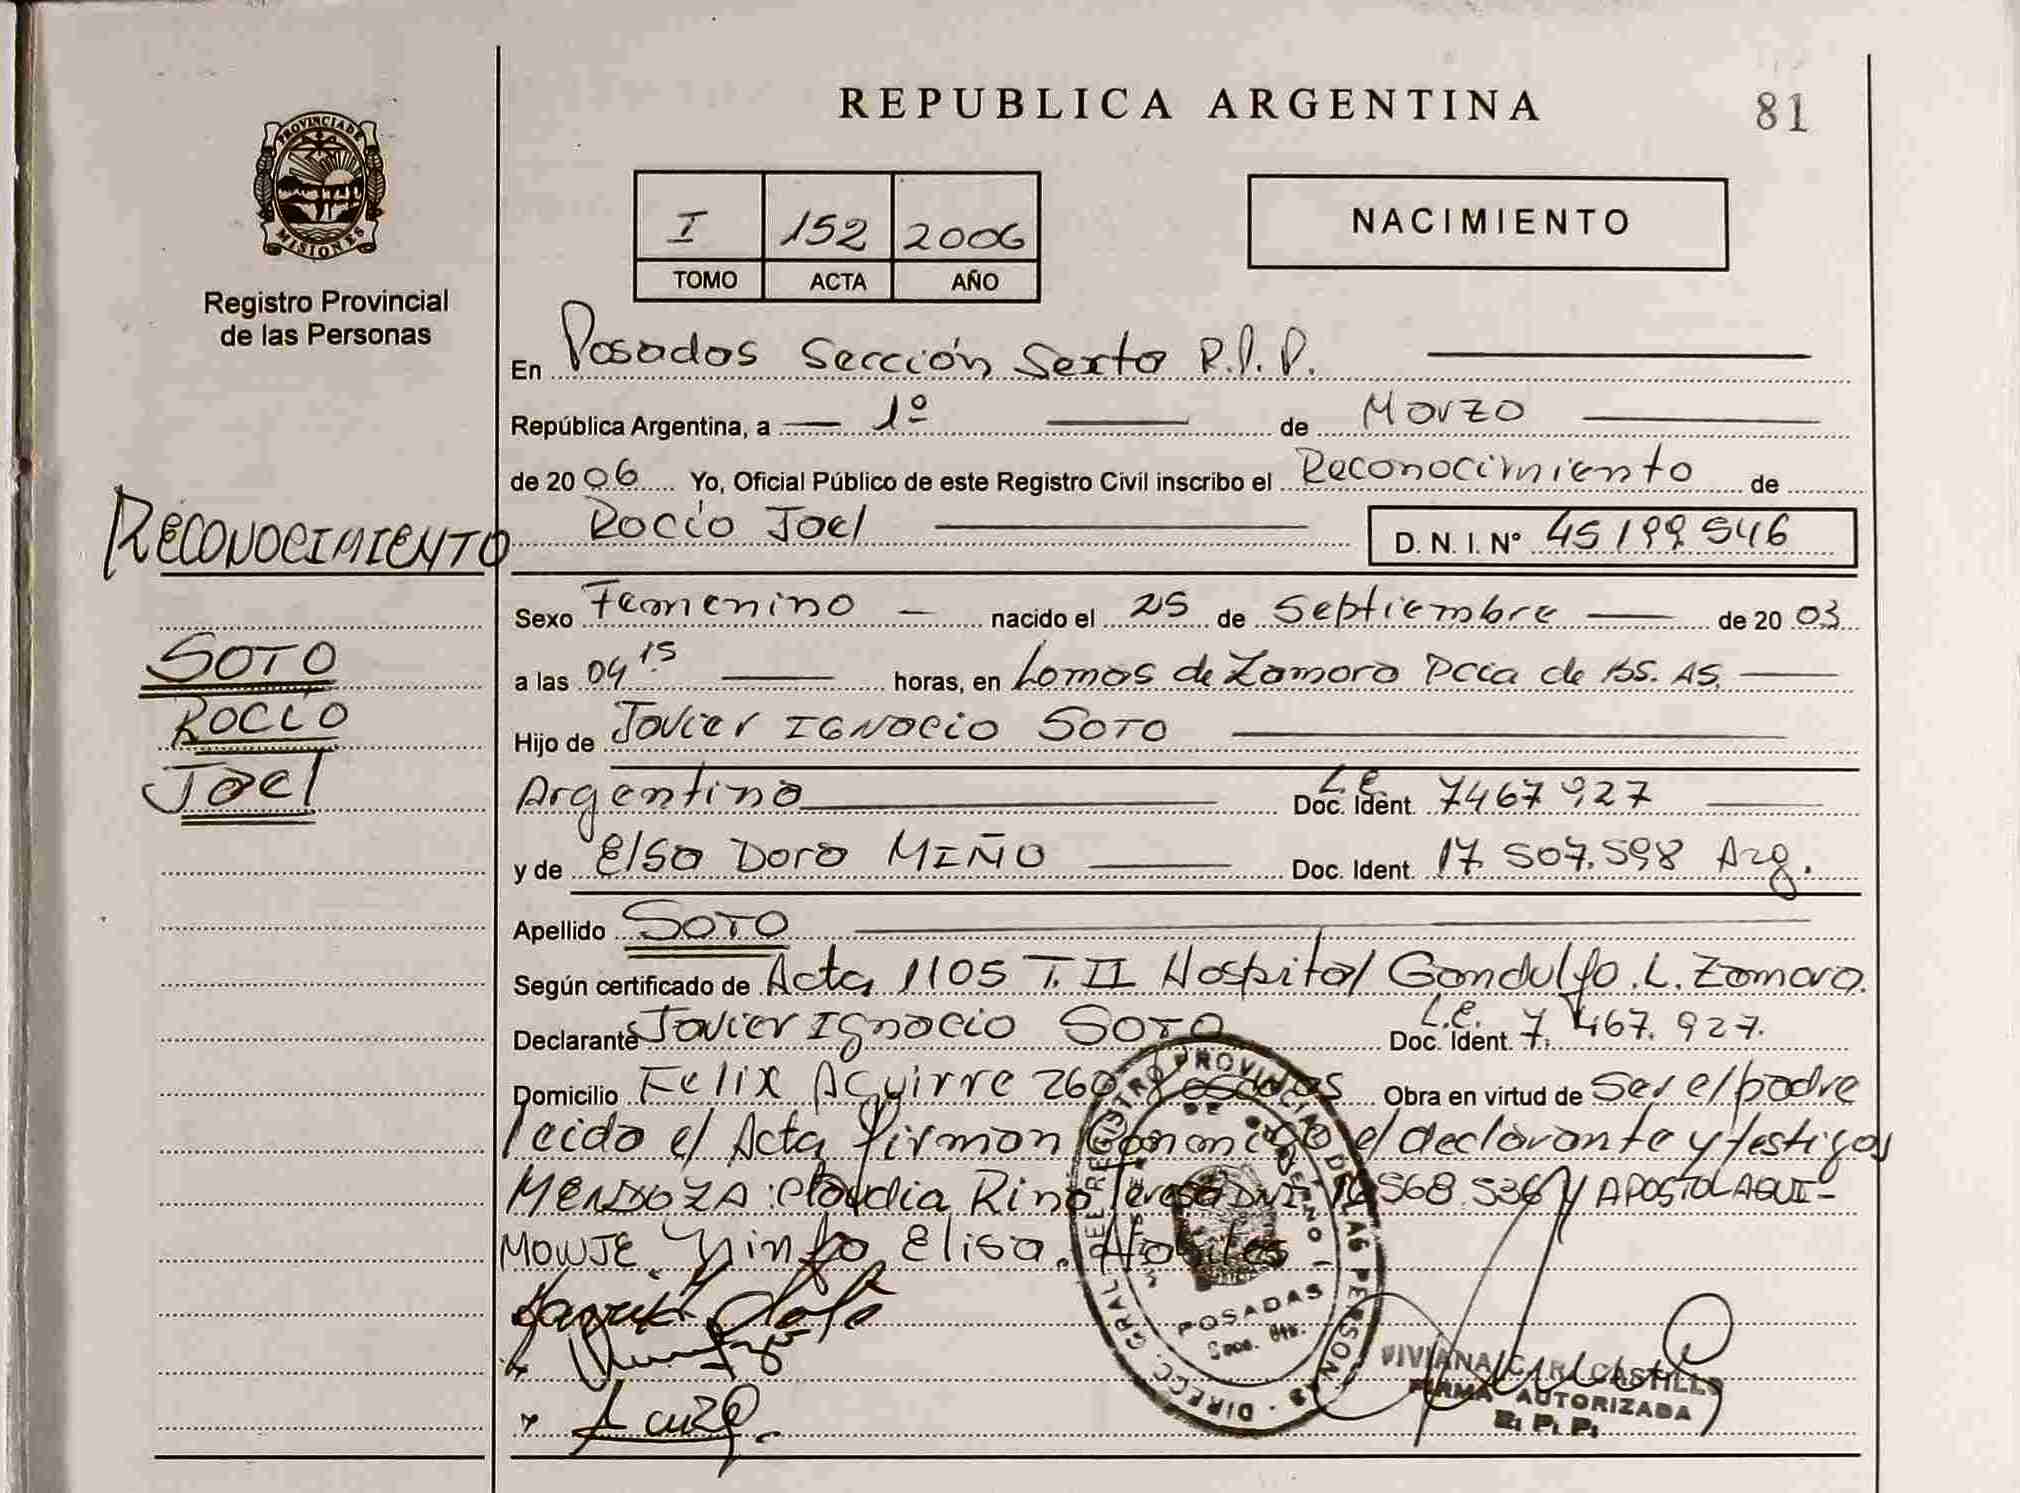 REPUBLICA ARGENTINA
81
PROVINCIA DE
MISIONES
Registro Provincial
de las Personas
I 152 2006
TOMO ACTA AÑO
NACIMIENTO
En Posadas Sección Sexta R.P.P.
República Argentina, a 1º de Marzo
de 2006 Yo, Oficial Público de este Registro Civil inscribo el Reconocimiento de
RECONOCIMIENTO
Rocío Joel D. N. I. N° 45199546
Sexo Femenino nacido el 25 de Septiembre de 2003
SOTO
a las 04 15 horas, en Lomas de Zamora Pcia de BS. AS.
ROCÍO
Hijo de Javier IGNACIO SOTO
Joel
Argentino Doc. Ident. L.E. 7467927
y de Elsa Dora MIÑO Doc. Ident. 17.507.598 Arg.
Apellido SOTO
Según certificado de Acta 1105 T. II Hospital Gandulfo. L. Zamora.
Declarante Javier Ignacio SOTO Doc. Ident. L.E. 7.467.927.
Domicilio Felix Aguirre 260 Posadas Obra en virtud de Ser el padre
leida el Acta firman Conmigo el declarante y testigos
MENDOZA: Claudia Rina Teresa DNI 568.536 y APOSTOL AGUI-
MOWJE Elisa. Habiles
DIRECC. GRAL. DEL REGISTRO PROVINCIAL DE LAS PERSONAS
POSADAS
VIVIANA CARI CASTILLO
FIRMA AUTORIZADA
R. P. P.